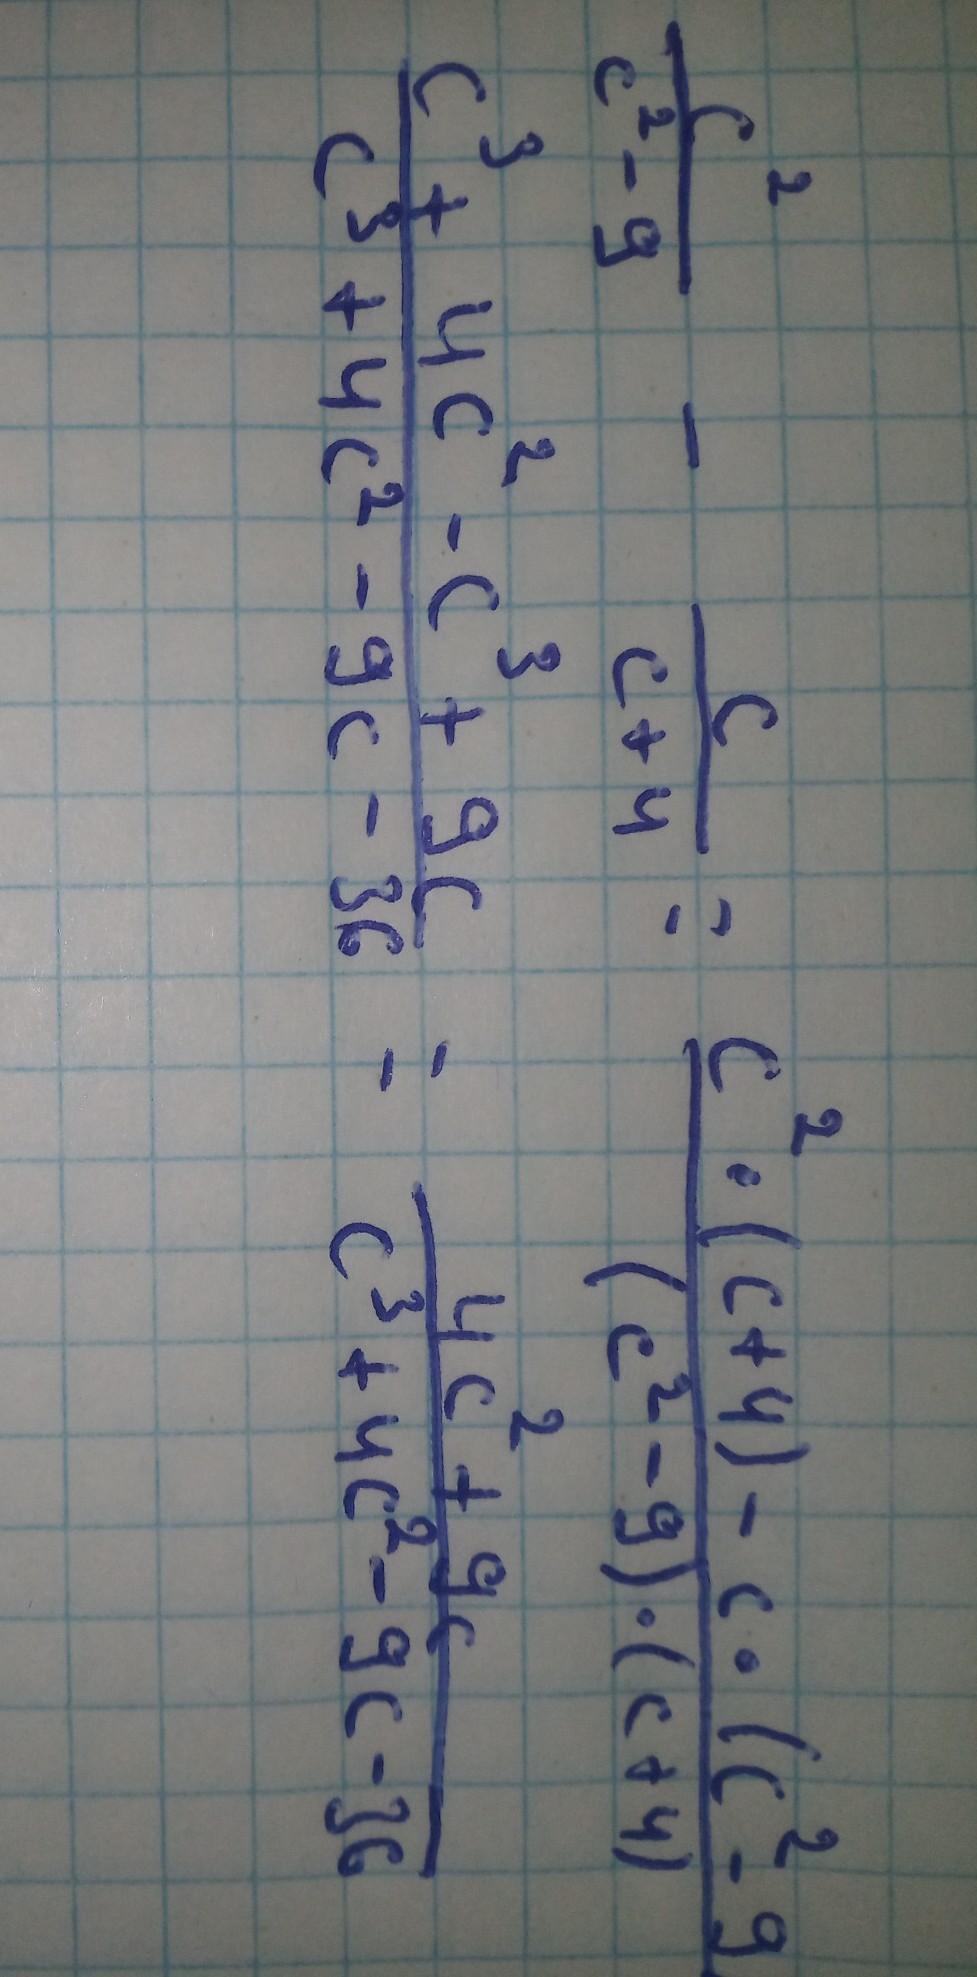 c² / c²-9 - c / c+4 = c²·(c+4)-c·(c²-9 / (c²-9)·(c+4)
c³+4c²-c³+9c / c³+4c²-9c-36 = 4c²+9c / c³+4c²-9c-36